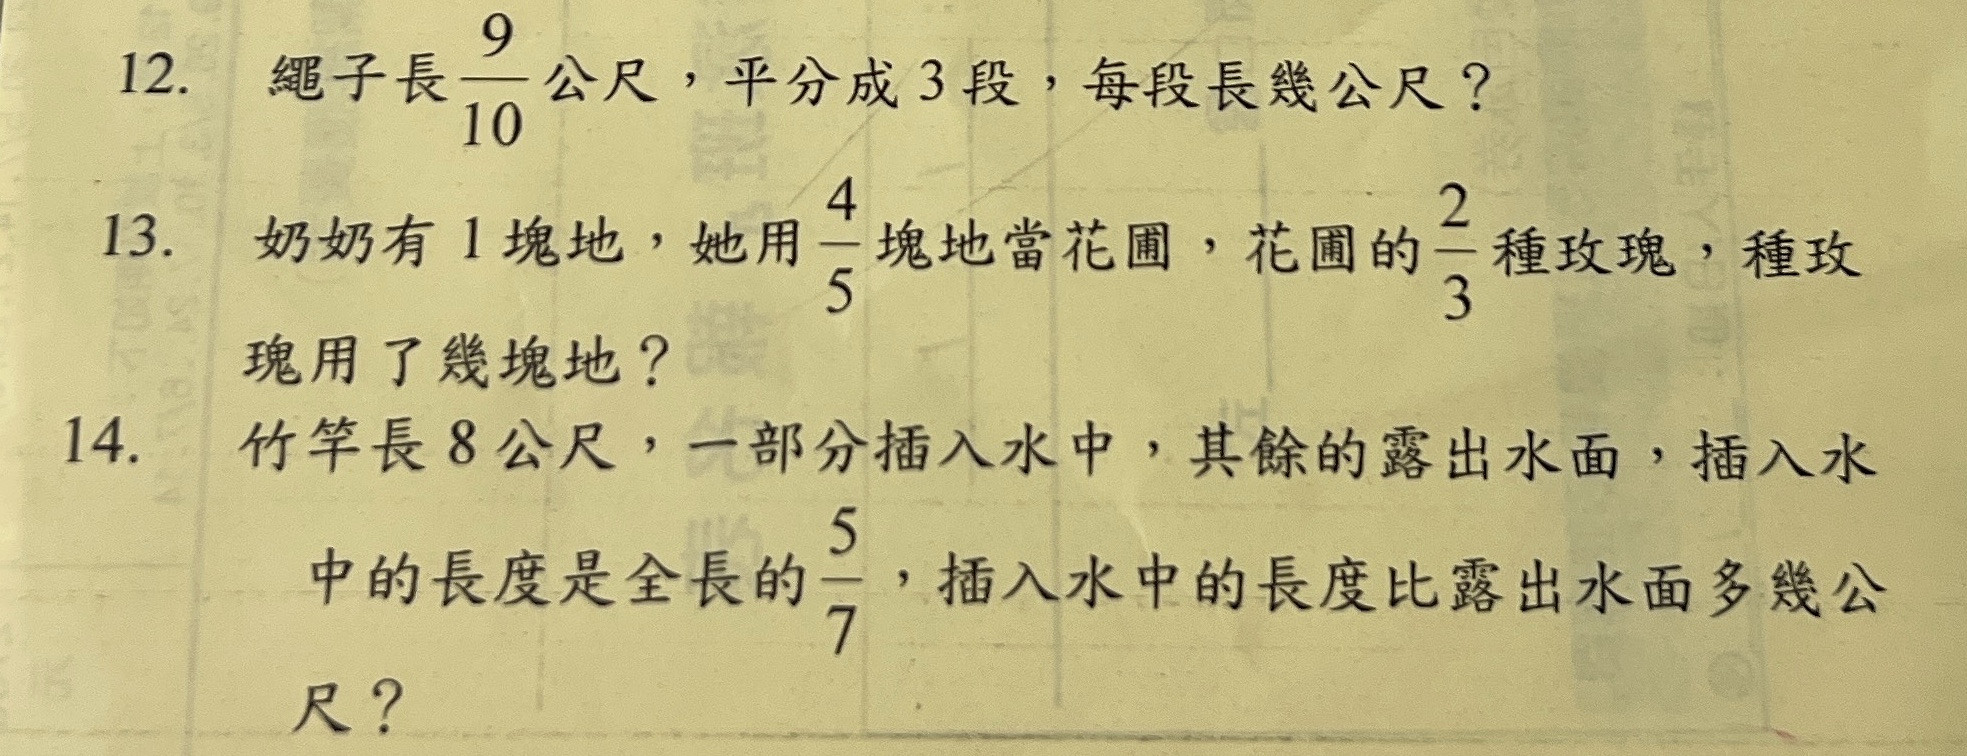 12. 繩子長 9/10 公尺，平分成 3 段，每段長幾公尺？
13. 奶奶有 1 塊地，她用 4/5 塊地當花圃，花圃的 2/3 種玫瑰，種玫
瑰用了幾塊地？
14. 竹竿長 8 公尺，一部分插入水中，其餘的露出水面，插入水
中的長度是全長的 5/7，插入水中的長度比露出水面多幾公
尺？